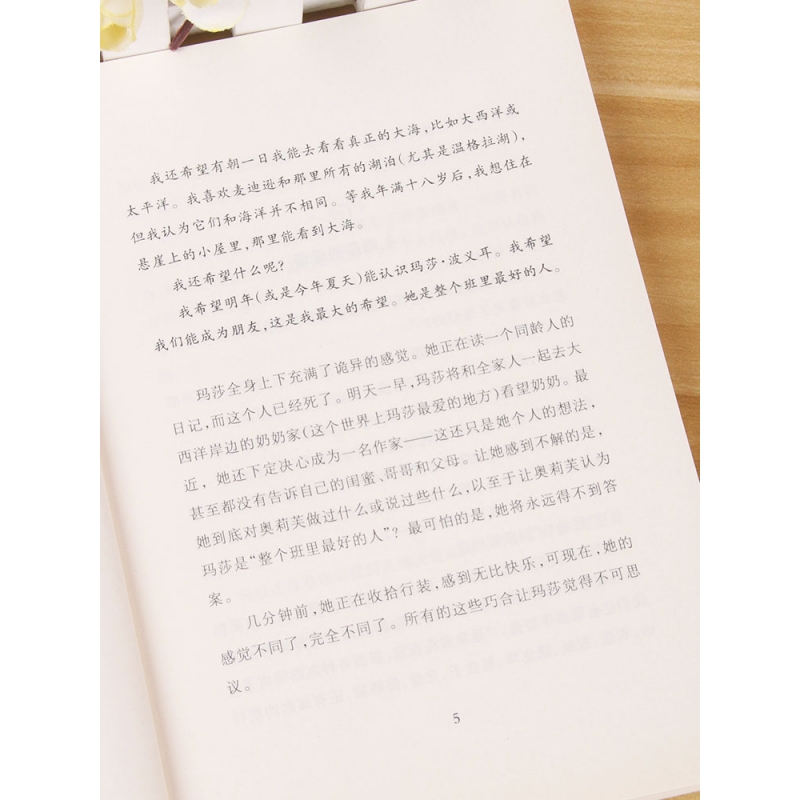 我还希望有朝一日我能去看看真正的大海,比如大西洋或
太平洋。我喜欢麦迪逊和那里所有的湖泊(尤其是温格拉湖),
但我认为它们和海洋并不相同。等我年满十八岁后,我想住在
悬崖上的小屋里,那里能看到大海。
我还希望什么呢?
我希望明年(或是今年夏天)能认识玛莎·波义耳。我希望
我们能成为朋友,这是我最大的希望。她是整个班里最好的人。
玛莎全身上下充满了诡异的感觉。她正在读一个同龄人的
日记,而这个人已经死了。明天一早,玛莎将和全家人一起去大
西洋岸边的奶奶家(这个世界上玛莎最爱的地方)看望奶奶。最
近，她还下定决心成为一名作家——这还只是她个人的想法,
甚至都没有告诉自己的闺蜜、哥哥和父母。让她感到不解的是,
她到底对奥莉芙做过什么或说过些什么,以至于让奥莉芙认为
玛莎是“整个班里最好的人”？最可怕的是,她将永远得不到答
案。
几分钟前,她正在收拾行装,感到无比快乐,可现在,她的
感觉不同了,完全不同了。所有的这些巧合让玛莎觉得不可思
议。
5